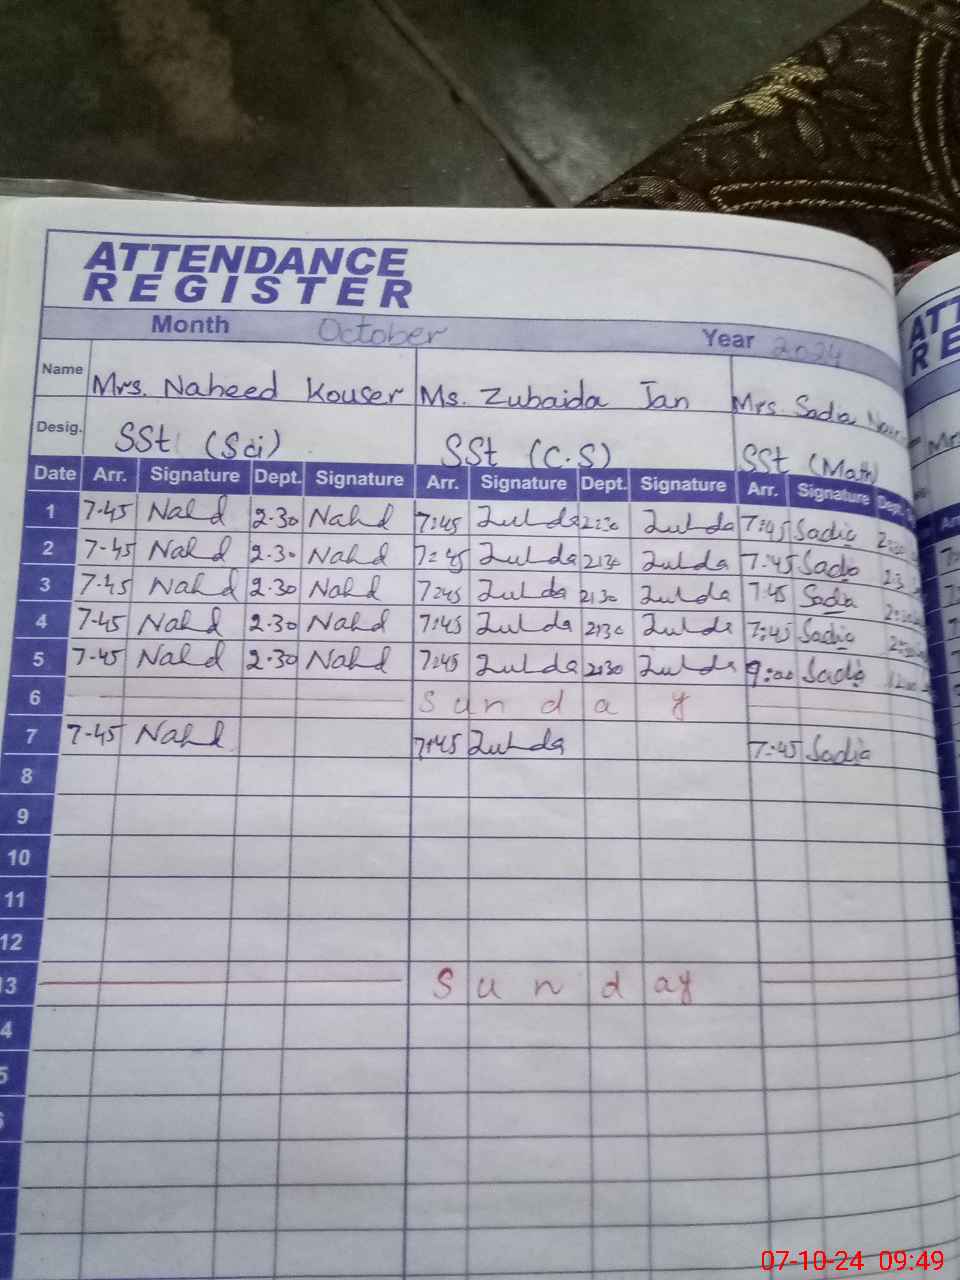 ATTENDANCE
REGISTER
Month October Year 2024
Name Mrs. Naheed Kouser Ms. Zubaida Jan Mrs. Sadia
Desig. SSt (Sci) SSt (C.S) SSt (Math)
Date Arr. Signature Dept. Signature Arr. Signature Dept. Signature Arr. Signature Dept.
1 7-45 Nahd 2.30 Nahd 7:45 2:30 7:45 Sadia
2 7-45 Nahd 2.30 Nahd 7:45 2:30 7:45 Sadia
3 7-45 Nahd 2.30 Nahd 7:45 2:30 7:45 Sadia
4 7-45 Nahd 2.30 Nahd 7:45 2:30 7:45 Sadia
5 7-45 Nahd 2.30 Nahd 7:45 2:30 9:00 Sadia
6 Sunday
7 7-45 Nahd 7:45 7:45 Sadia
8
9
10
11
12
13 Sunday
4
5
07-10-24 09:49